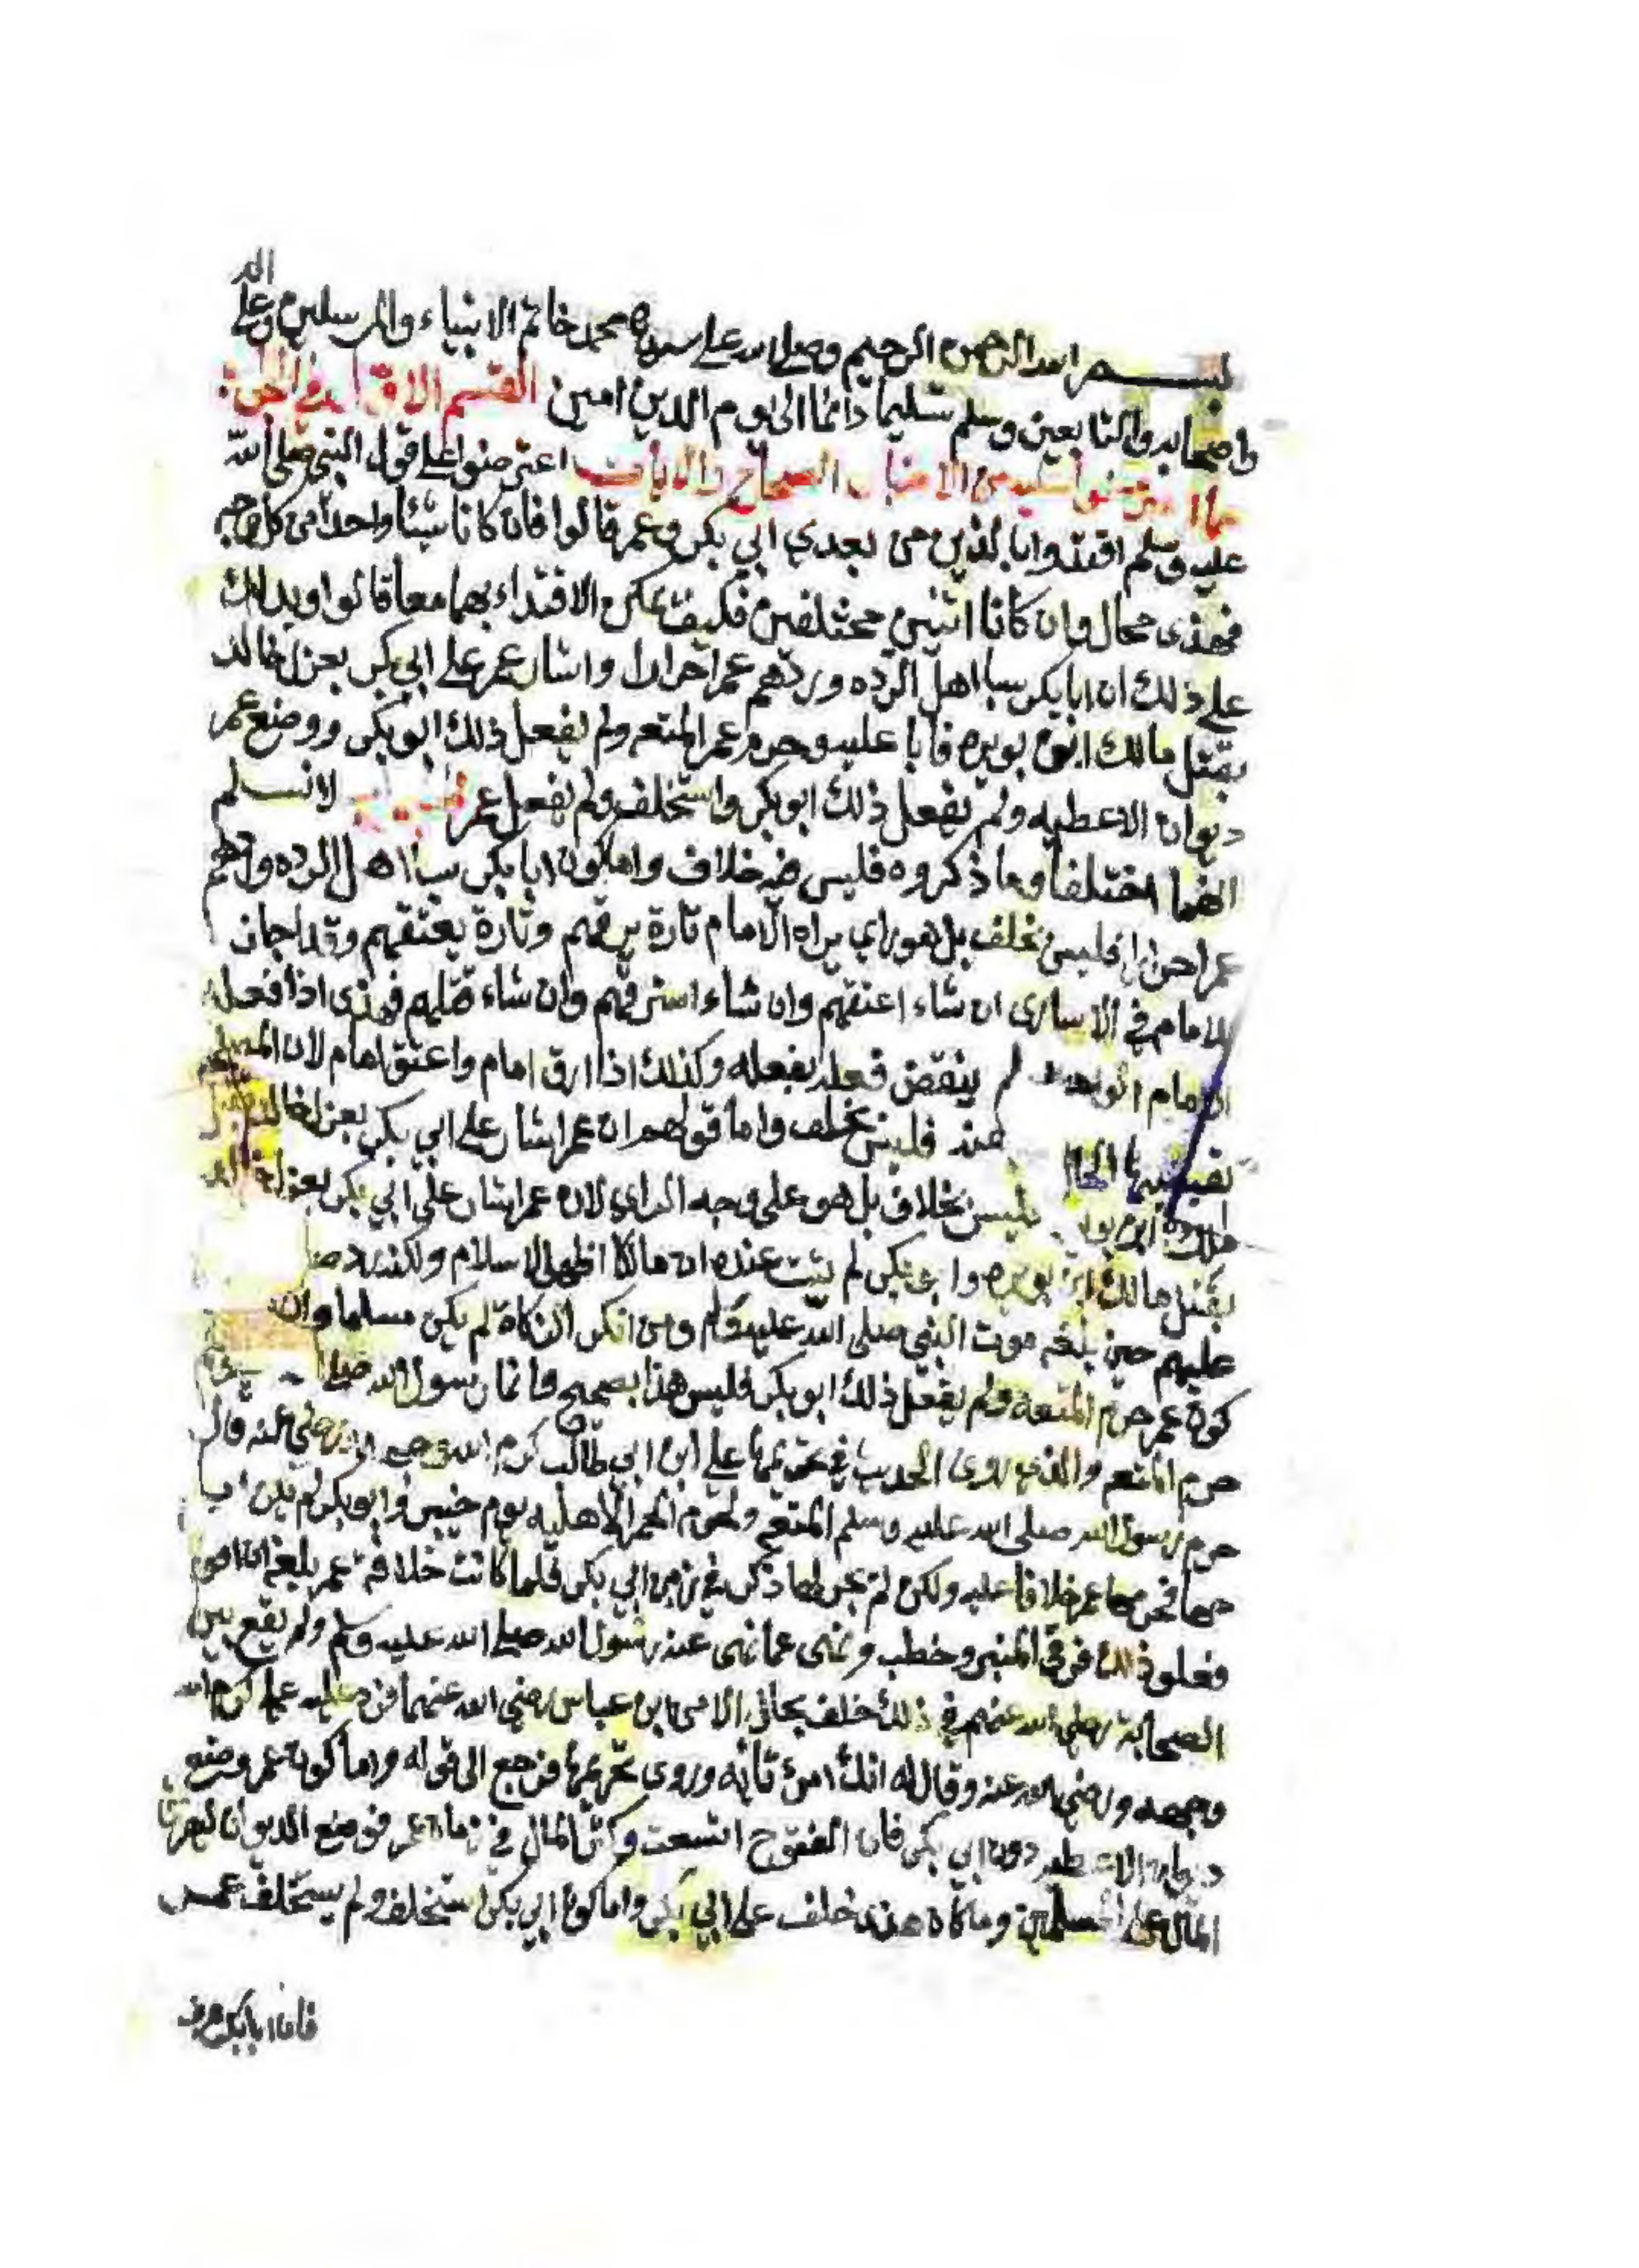 بسم الله الرحمن الرحيم وصلى الله على سيدنا محمد خاتم الانبياء والمرسلين وعلى اله
واصحابه والتابعين وسلم تسليما دائما الى يوم الدين امين القسم
من الاخبار الصحاح والايات اعترضوا على قول النبي صلى الله
عليه وسلم اقتدوا بالذين من بعدي ابي بكر وعمر قالوا فان كانا شيئا واحدا من كل وجه
فهذى محال وان كانا اثنين مختلفين فكيف يمكن الاقتداء بهما معا قالوا ويدلك
على ذلك ان ابا بكر سبا اهل الرده وردهم عمر احرارا واشار عمر على ابي بكر بعزل خالد
بقتل مالك ابن نويره فابا عليه وحرم عمر المتعه ولم يفعل ذلك ابو بكر ووضع عمر
ديوان الاعطيه ولم يفعل ذلك ابو بكر واستخلف ولم يفعل عمر لا نسلم
انهما اختلفا وما ذكروه فليس فيه خلاف واما كون ابا بكر سبا اهل الرده وردهم
عمر احرارا فليس بخلف بل هو راي يراه الامام تارة يرقهم وتارة يعتقهم وقد اجاز
للامام في الاسارى ان شاء اعتقهم وان شاء استرقهم وان شاء قتلهم فهذى اذا فعله
الامام لم ينقض فعله بفعله وكذلك اذا ارق امام واعتق امام لان
عنه فليس بخلف واما قولهم ان عمر اشار على ابي بكر بعزل خالد بقتل
فليس بخلاف بل هو على وجه الراي لان عمر اشار على ابي بكر بعزل خالد
بقتل مالك ابن نويره وابي بكر لم يثبت عنده ان مالكا اظهر الاسلام ولكنه
عليهم حين بلغه موت النبي صلى الله عليه وسلم ومن انكر الزكاة لم يكن مسلما وان
كون عمر حرم المتعه ولم يفعل ذلك ابو بكر فليس هذا بصحيح وانما رسول الله
حرم المتعه والذي روى الحديث في تحريمها علي ابن ابي طالب كرم الله وجهه عنه قال
حرم رسول الله صلى الله عليه وسلم المتعه ولحوم الحمر الاهليه يوم خيبر وابو بكر لم يكن
فحرمها عمر خلافا عليه ولكن لم يجر لها ذكر في زمن ابي بكر فلما كانت خلافة عمر بلغه ان
فعلو ذلك فرقى المنبر وخطب ونهى عما نهى عنه رسول الله صلى الله عليه وسلم ولم يقع بين
الصحابة رضي الله عنهم في ذلك خلف بحال الا من ابن عباس رضي الله عنهما علي كرم الله
وجهه ورضي الله عنه وقال له انك امرئ تائه وروى تحريمها فرجع الى قوله واما كون عمر وضع
ديوان الاعطيه دون ابي بكر فان الفتوح اتسعت وكثر المال في زمان عمر فوضع الديوان
المال على المسلمين وما كان هذى خلف على ابي بكر واما كون ابي بكر استخلف ولم يستخلف عمر
فان ابا بكر